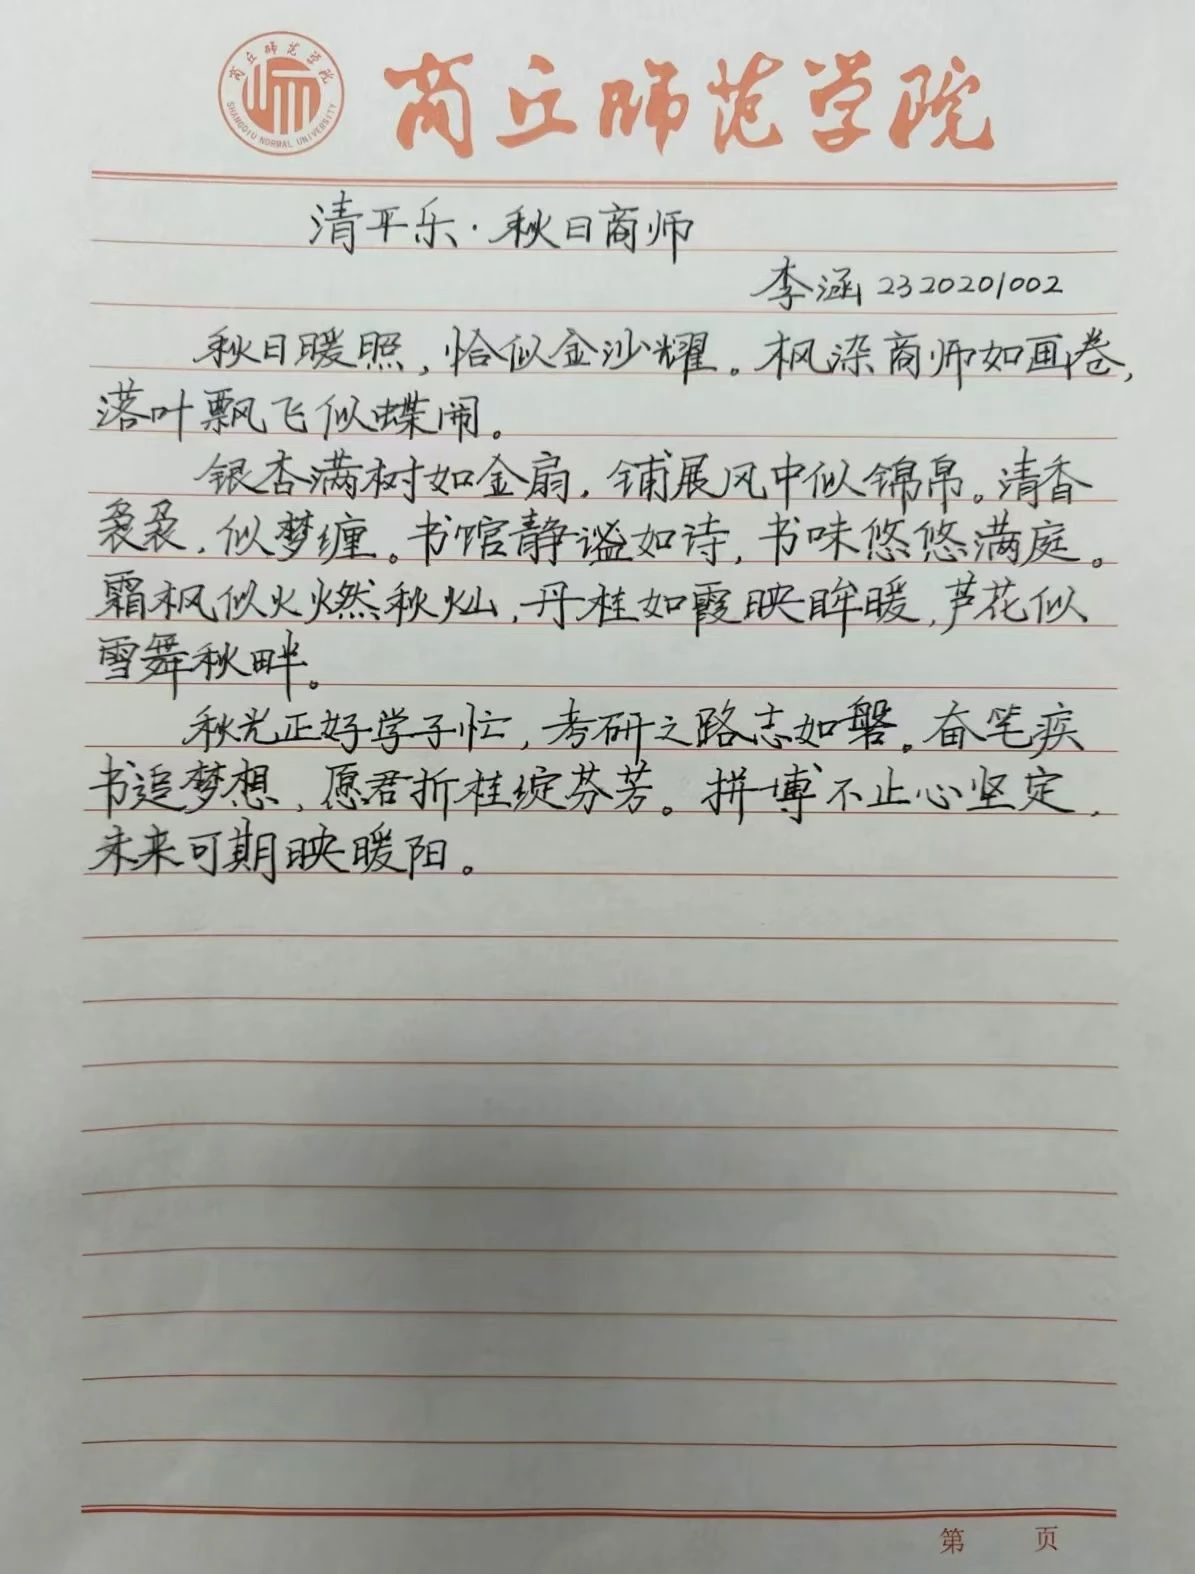 商丘师范学院
商丘师范学院
SHANGQIU NORMAL UNIVERSITY
清平乐·秋日商师
李涵 2320201002
秋日暖照，恰似金沙耀。枫染商师如画卷，
落叶飘飞似蝶闹。
银杏满树如金扇，铺展风中似锦帛。清香
袅袅，似梦缠。书馆静谧如诗，书味悠悠满庭。
霜枫似火燃秋灿，丹桂如霞映眸暖，芦花似
雪舞秋畔。
秋光正好学子忙，考研之路志如磐。奋笔疾
书追梦想，愿君折桂绽芬芳。拼搏不止心坚定，
未来可期映暖阳。
第 页